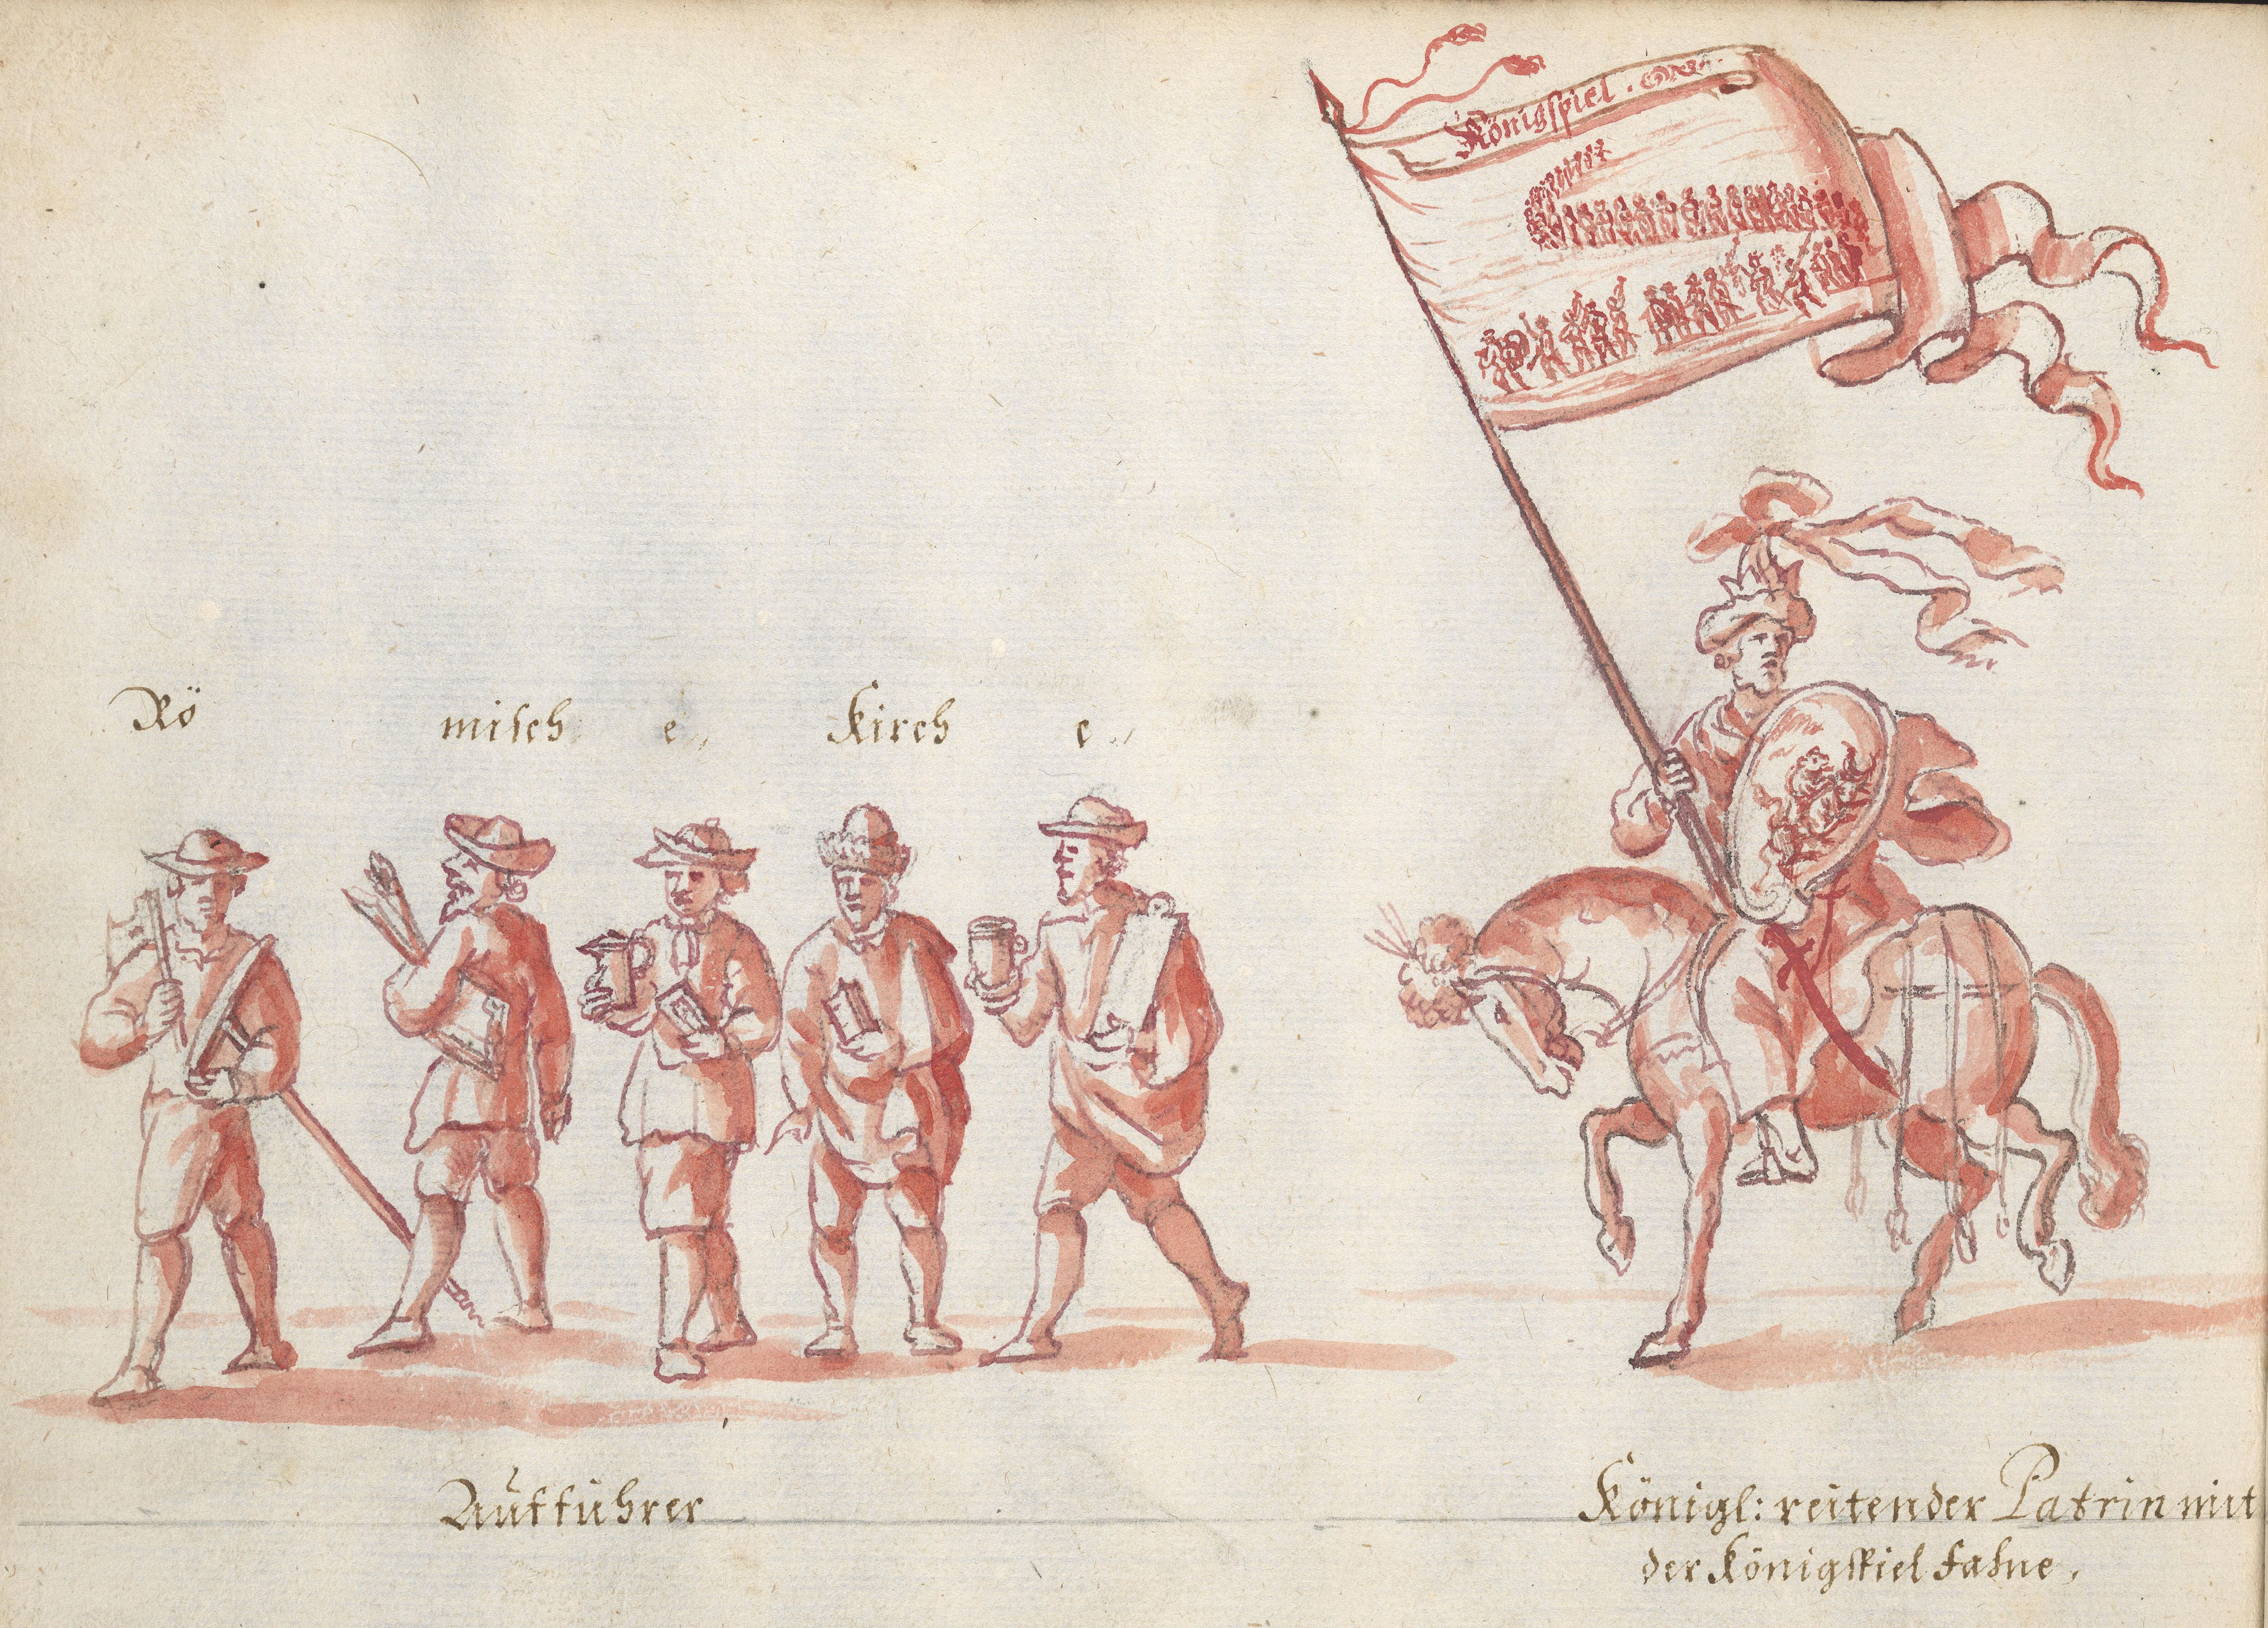 Königspiel.
Rö misch e„ Kirch e„
Aufführer
Königl: reitender Patrin mit
der Königspiel Fahne.